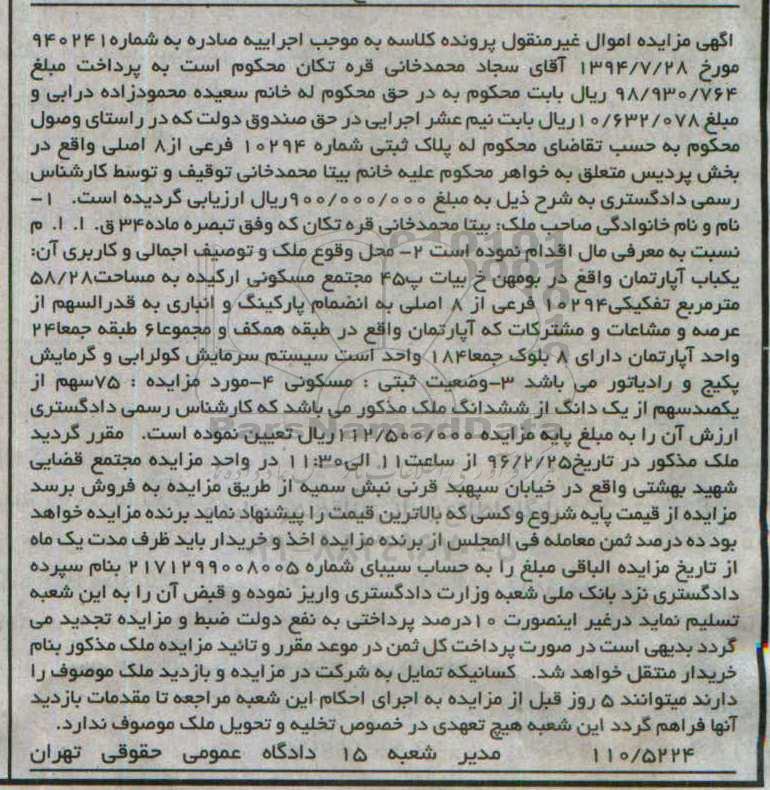 اگهی مزایده اموال غیرمنقول پرونده کلاسه به موجب اجراییه صادره به شماره۹۴۰۲۴۱
مورخ ۱۳۹۴/۷/۲۸ آقای سجاد محمدخانی قره تکان محکوم است به پرداخت مبلغ
۹۸/۹۳۰/۷۶۴ ریال بابت محکوم به در حق محکوم له خانم سعیده محمودزاده درابی و
مبلغ ۱۰/۶۳۲/۰۷۸ریال بابت نیم عشر اجرایی در حق صندوق دولت که در راستای وصول
محکوم به حسب تقاضای محکوم له پلاک ثبتی شماره ۱۰۲۹۴ فرعی از۸ اصلی واقع در
بخش پردیس متعلق به خواهر محکوم علیه خانم بیتا محمدخانی توقیف و توسط کارشناس
رسمی دادگستری به شرح ذیل به مبلغ ۹۰۰/۰۰۰/۰۰۰ریال ارزیابی گردیده است. ۱-
نام و نام خانوادگی صاحب ملک: بیتا محمدخانی قره تکان که وفق تبصره ماده۳۴ ق. ا. ا. م
نسبت به معرفی مال اقدام نموده است ۲- محل وقوع ملک و توصیف اجمالی و کاربری آن:
یکباب آپارتمان واقع در بومهن خ بیات پ۴۵ مجتمع مسکونی ارکیده به مساحت۵۸/۲۸
مترمربع تفکیکی۱۰۲۹۴ فرعی از ۸ اصلی به انضمام پارکینگ و انباری به قدرالسهم از
عرصه و مشاعات و مشترکات که آپارتمان واقع در طبقه همکف و مجموعا۶ طبقه جمعا۲۴
واحد آپارتمان دارای ۸ بلوک جمعا۱۸۴ واحد است سیستم سرمایش کولرابی و گرمایش
پکیج و رادیاتور می باشد ۳-وضعیت ثبتی : مسکونی ۴-مورد مزایده : ۷۵سهم از
یکصدسهم از یک دانگ از ششدانگ ملک مذکور می باشد که کارشناس رسمی دادگستری
ارزش آن را به مبلغ پایه مزایده ۱۱۲/۵۰۰/۰۰۰ریال تعیین نموده است. مقرر گردید
ملک مذکور در تاریخ۹۶/۲/۲۵ از ساعت۱۱ الی۱۱:۳۰ در واحد مزایده مجتمع قضایی
شهید بهشتی واقع در خیابان سپهبد قرنی نبش سمیه از طریق مزایده به فروش برسد
مزایده از قیمت پایه شروع و کسی که بالاترین قیمت را پیشنهاد نماید برنده مزایده خواهد
بود ده درصد ثمن معامله فی المجلس از برنده مزایده اخذ و خریدار باید ظرف مدت یک ماه
از تاریخ مزایده الباقی مبلغ را به حساب سیبای شماره ۲۱۷۱۲۹۹۰۰۸۰۰۵ بنام سپرده
دادگستری نزد بانک ملی شعبه وزارت دادگستری واریز نموده و قبض آن را به این شعبه
تسلیم نماید درغیر اینصورت ۱۰درصد پرداختی به نفع دولت ضبط و مزایده تجدید می
گردد بدیهی است در صورت پرداخت کل ثمن در موعد مقرر و تائید مزایده ملک مذکور بنام
خریدار منتقل خواهد شد. کسانیکه تمایل به شرکت در مزایده و بازدید ملک موصوف را
دارند میتوانند ۵ روز قبل از مزایده به اجرای احکام این شعبه مراجعه تا مقدمات بازدید
آنها فراهم گردد این شعبه هیچ تعهدی در خصوص تخلیه و تحویل ملک موصوف ندارد.
۱۱۰/۵۲۲۴ مدیر شعبه ۱۵ دادگاه عمومی حقوقی تهران
ParsNamadData